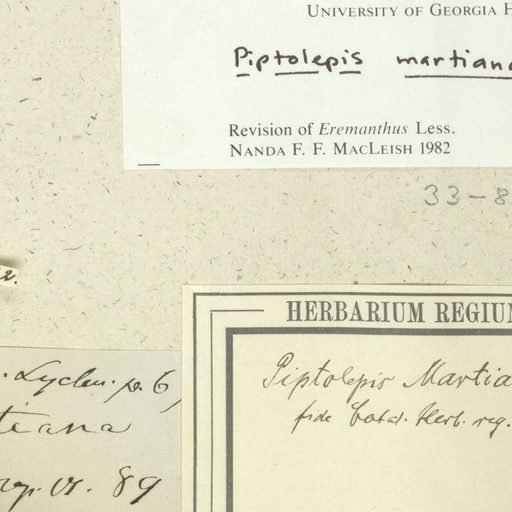 UNIVERSITY OF GEORGIA H
Piptolepis martiana
Revision of Eremanthus Less.
NANDA F. F. MACLEISH 1982
33-8
2.
HERBARIUM REGIU
Piptolepis Martia
fide Catal. Herb. reg.
. Lychn. p. 6
teana
VI. 89